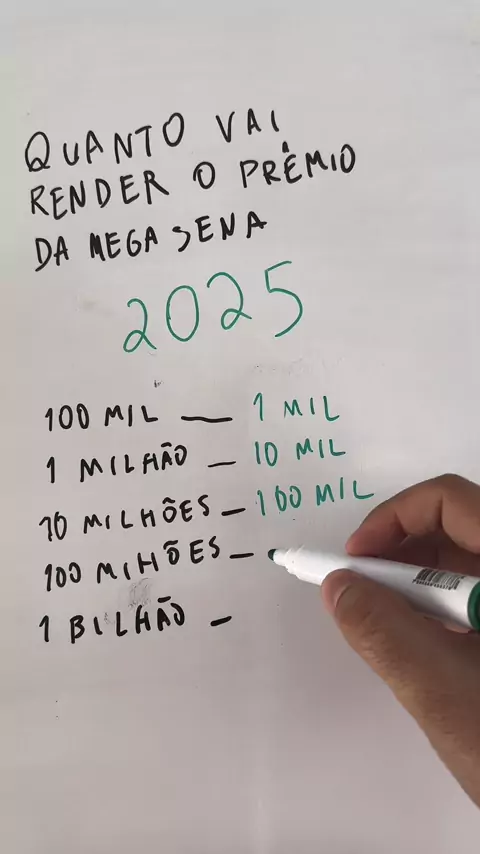 QUANTO VAI
RENDER O PRÊMIO
DA MEGA SENA
2025
100 MIL — 1 MIL
1 MILHÃO — 10 MIL
10 MILHÕES — 100 MIL
100 MIHÕES —
1 BILHÃO —